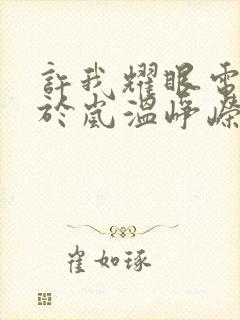 許我耀眼電
於嵐溫崢嶸
崔如琢